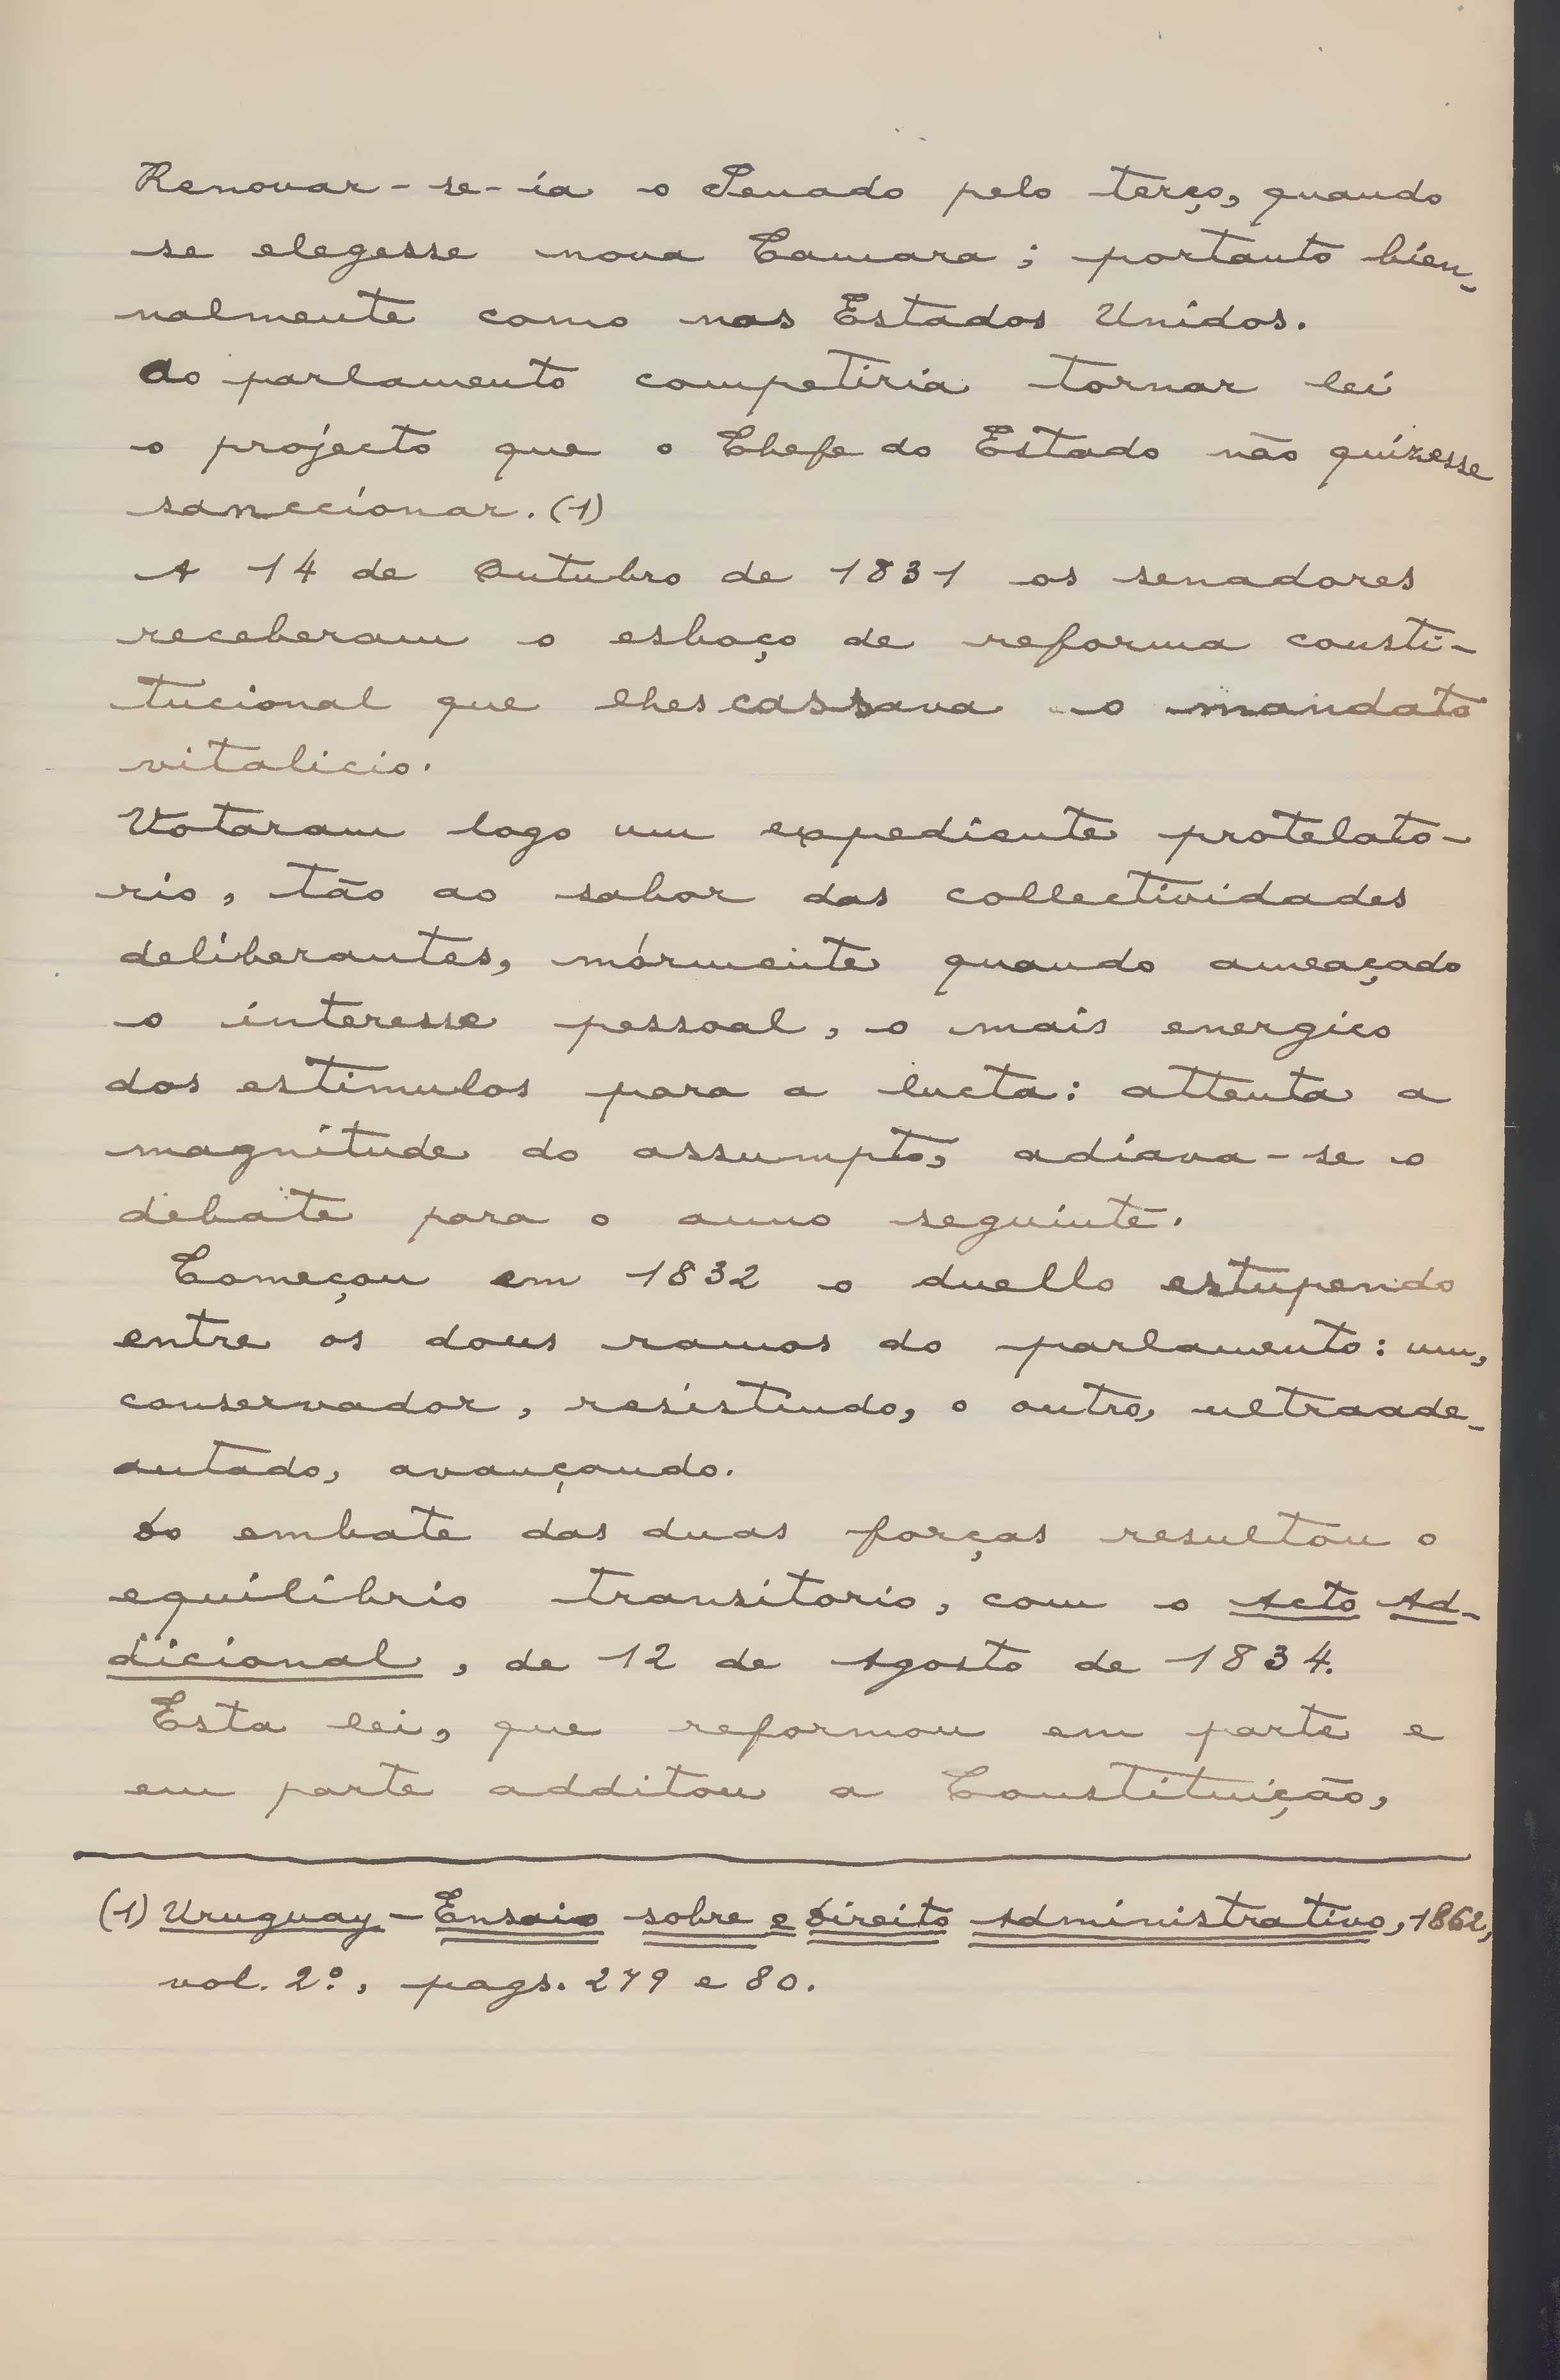 Renovar-se-ia o Senado pelo terço, quando
se elegesse nova Camara; portanto bien-
nalmente como nos Estados Unidos.
Ao parlamento competiria tornar lei
o projecto que o Chefe do Estado não quizesse
sanccionar. (1)
A 14 de Outubro de 1831 os senadores
receberam o esboço de reforma consti-
tucional que lhes cassava o mandato
vitalicio.
Votaram logo um expediente protelato-
rio, tão ao sabor das collectividades
deliberantes, mórmente quando ameaçado
o interesse pessoal, o mais energico
dos estimulos para a lucta: attenta a
magnitude do assumpto, adiava-se o
debate para o anno seguinte.
Começou em 1832 o duello estupendo
entre os dous ramos do parlamento: um,
conservador, resistindo, o outro, ultraade-
antado, avançando.
Do embate das duas forças resultou o
equilibrio transitorio, com o Acto Ad-
dicional, de 12 de Agosto de 1834.
Esta lei, que reformou em parte e
em parte additou a Constituição,
(1) Uruguay - Ensaio sobre o Direito Administrativo, 1862,
vol. 2º, pags. 279 e 80.